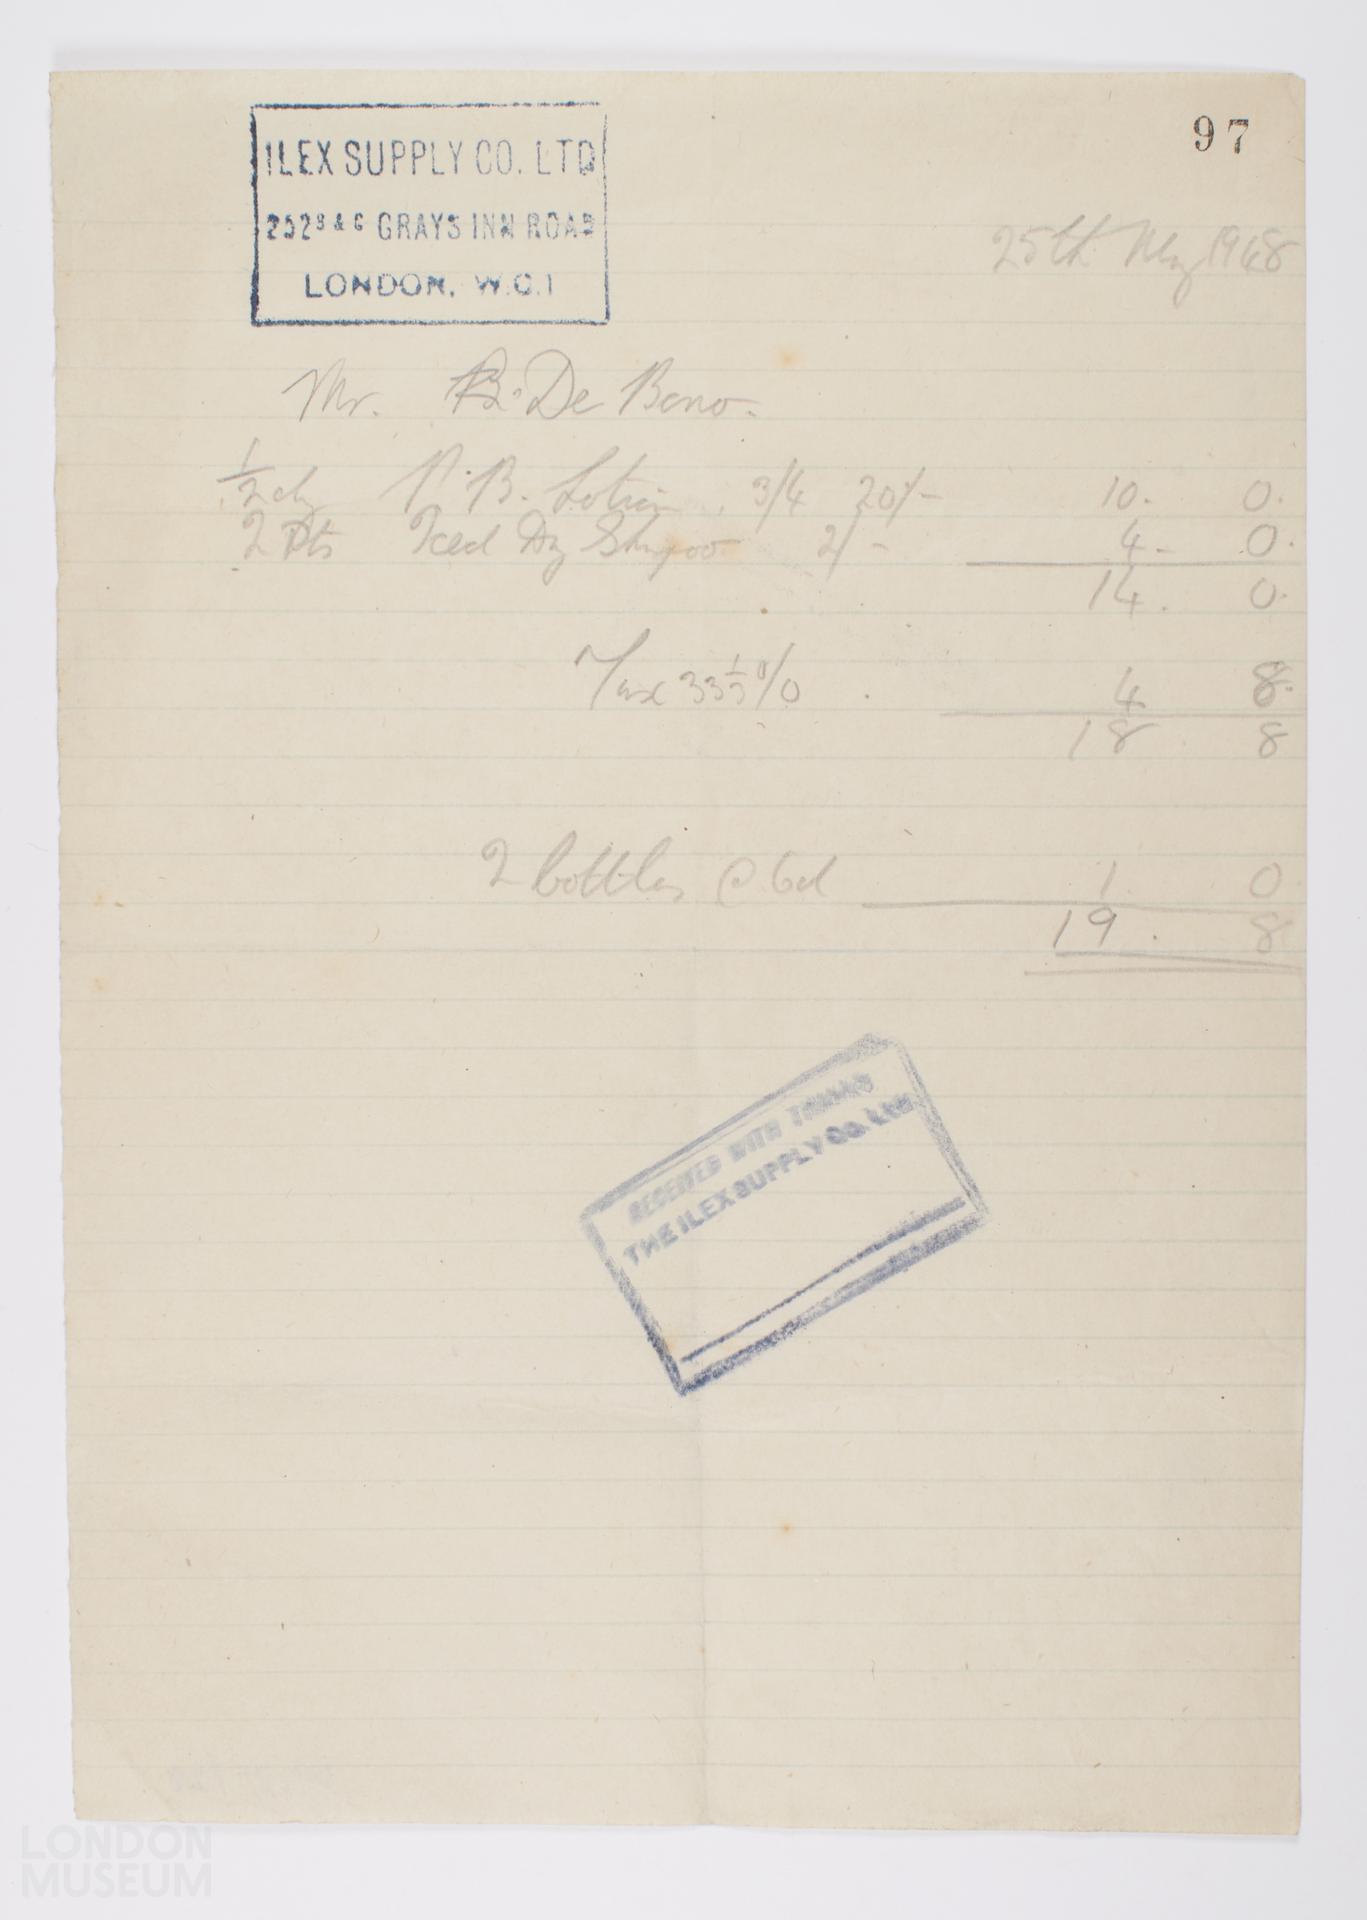 ILEX SUPPLY CO. LTD
252B & C GRAYS INN ROAD
LONDON. W.C.1
97
25th May 1948
Mr. B. De Bono.
1/2 dz P.B. Lotion. 3/4 20/- 10. 0.
2 Pts Iced Dry Shampoo 2/- 4- 0.
14. 0.
Tax 33 1/3 % 4 8.
18 8
2 bottles @ 6d 1 0
19. 8
RECEIVED WITH THANKS
THE ILEX SUPPLY CO. LTD.
LONDON
MUSEUM